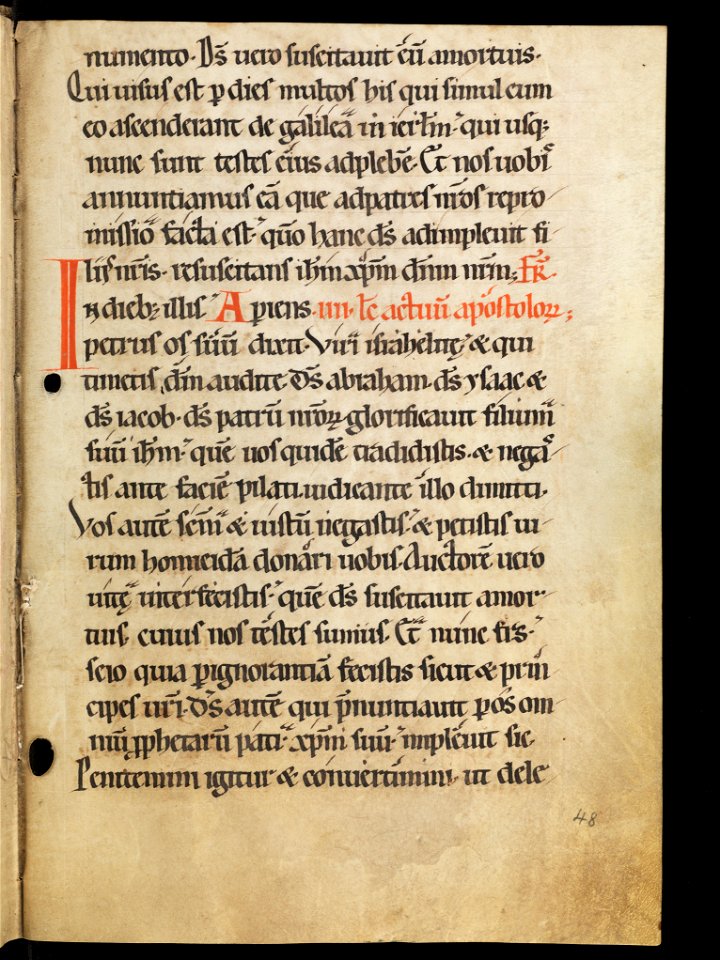 numento. Ds̄ uero suscitauit eū amortuis.
Qui uisus est ꝑ dies multos his qui simul cum
eo ascenderant de galileā in ierłm̄. qui usq;
nunc sunt testes eius adplebē. Et nos uobis
annuntiamus eā que adpatres nr̄os repro
missiō facta est. quō hanc ds̄ adimpleuit fi
liis nr̄is. resuscitans ihm̄ xp̄m dn̄m nr̄m; FR̄.
In dieb; illis. Aꝑiens .iiii. łc̄ actuū apostoloꝝ;
petrus os suū dixit. Viri israhelitę & qui
timetis dm̄ audite. Ds̄ abraham. ds̄ ysaac &
ds̄ iacob. ds̄ patrū nr̄oꝝ glorificauit filium
suū ihm̄. quē uos quidē tradidistis. & negas
tis ante faciē pilati. iudicante illo dimitti.
Vos autē sc̄m & iustū negastis. & petistis ui
rum homicidā donari uobis. Auctorē uero
uitę interfecistis. quē ds̄ suscitauit amor
tuis. cuius nos testes sumus. Et nunc fr̄s.
scio quia ꝑignorantiā fecistis sicut & prin
cipes ur̄i. Ds̄ autē qui p̄nuntiauit ꝑ os om
niū ꝓphetarū pati xp̄m suū. impleuit sic.
Penitemini igitur & conuertimini. ut dele
48